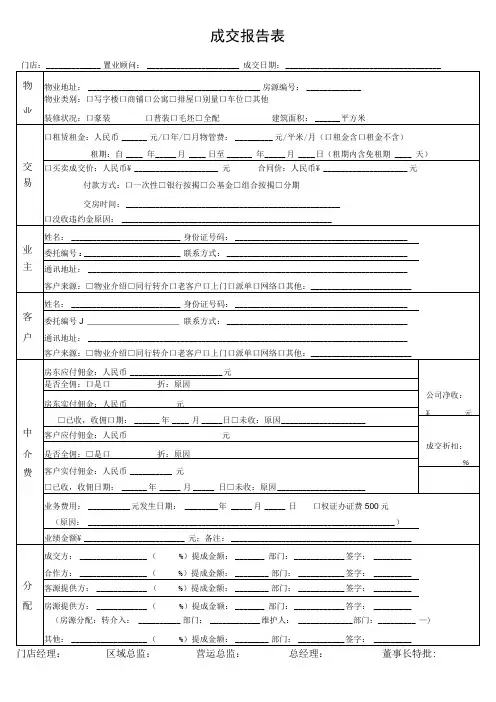 成交报告表
门店：____________ 置业顾问： ____________________ 成交日期：__________________________________
物业
物业地址： ____________________________________ 房源编号： ____________
物业类别：口写字楼口商铺口公寓口排屋口别量口车位口其他
装修状况：口豪装 口普装口毛坯口全配 建筑面积：______平方米
交易
口租赁租金：人民币 ______ 元/口年/口月物管费： ________ 元/平米/月（口租金含口租金不含）
租期：白 ____ 年_____月 ____ 日至 ______ 年_____月 ____日（租期内含免租期 ____ 天）
口买卖成交价：人民币¥ __________________ 元 合同价：人民币¥ __________________ 元
付款方式：口一次性口银行按揭口公基金口组合按揭口分期
交房时间： ______________________________________________
口没收违约金原因： ______________________________________________
业主
姓名： ________________________ 身份证号码： ____________________________________
委托编号：______________________ 联系方式： ______________________________________
通讯地址： ____________________________________________________________________
客户来源：口物业介绍口同行转介口老客户口上门口派单口网络口其他：______________________
客户
姓名： ________________________ 身份证号码： ____________________________________
委托编号 J ____________________ 联系方式： ______________________________________
通讯地址： ____________________________________________________________________
客户来源：口物业介绍口同行转介口老客户口上门口派单口网络口其他：______________________
中介费
房东应付佣金：人民币 ______________________元
是否全佣：口是口 折：原因
房东实付佣金：人民币 元
口已收，收佣口期： ______ 年 ____ 月 _____日口未收：原因____________________
客户应付佣金：人民币 元
是否全佣：口是口 折：原因
客户实付佣金：人民币 __________ 元
口已收，收佣日期： ______ 年 _____ 月 _____ 日口未收：原因____________________
公司净收：
¥ 元
成交折扣：
%
业务费用： __________元发生日期： ________年 _____月 _____ 日 口权证办证费 500 元
（原因： ____________________________________________________________________ ）
业绩金额¥ ______________________ 元；备注： ______________________________________
分配
成交方： ________________ （ %）提成金额：_______ 部门：____________签字： _________
合作方： ________________ （ %）提成金额：________ 部门：____________签字： _________
客源提供方： ____________ （ %）提成金额：________ 部门：____________签字： _________
房源提供方： ____________ （ %）提成金额：_______ 部门：____________签字： _________
（房源分配：转介入： __________ 部门：____________维护人： _____________部门：_________ —）
其他： __________________ （ %）提成金额：________ 部门：____________签字： _________
门店经理： 区域总监： 营运总监： 总经理： 董事长特批：